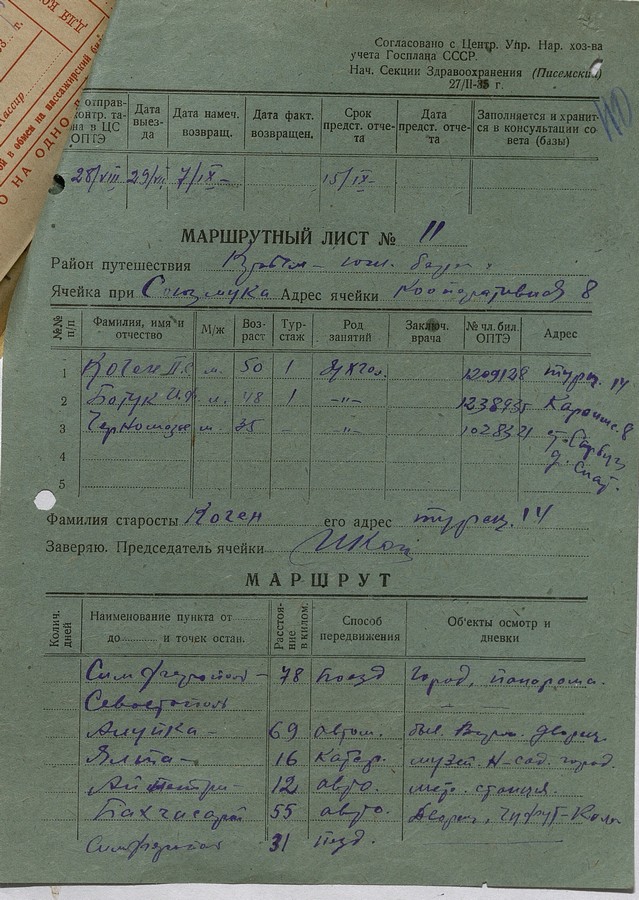 Согласовано с Центр. Упр. Нар. хоз-ва
учета Госплана СССР.
Нач. Секции Здравоохранения (Писемский)
27/II-35 г.
ДЛЯ
г.
Кассир
й в обмен на пассажирский би
О НА ОДНО
отправ- Дата Дата намеч. Дата факт. Срок Дата Заполняется и хранит-
контр. та- выез- возвращ. возвращен. предст. отче- предст. отче- ся в консультации со-
на в ЦС да та та вета (базы)
ОПТЭ
28/VIII 29/VIII 7/IX- 15/IX-
МАРШРУТНЫЙ ЛИСТ № 11
Район путешествия Крым - юж. берег
Ячейка при Союзмука Адрес ячейки Кооперативная 8
№№ п/п Фамилия, имя и отчество М/ж Воз-раст Тур-стаж Род занятий Заключ. врача № чл. бил. ОПТЭ Адрес
1 Коген П.С. м. 50 1 бухгал. 1209128 турец. 14
2 м. 48 1 -"- 1238935 8
3 м. 35 - -"- 1028321
4
5
Фамилия старосты Коген его адрес турец. 14
Заверяю. Председатель ячейки
МАРШРУТ
Колич. дней Наименование пункта от Расстоя-ние в килом. Способ передвижения Об'екты осмотр и дневки
до и точек остан.
Симферополь - 78 поезд Город, панорама.
Севастополь
Алупка - 69 автом. быв. Ворон. дворец
Ялта - 16 Катер. музей. Н-сад. город.
Ай Петри - 12 авто. мет. станция.
Бахчисарай 55 авто. Дворец, Чуфут-Кале
Симферополь 31 Поезд.